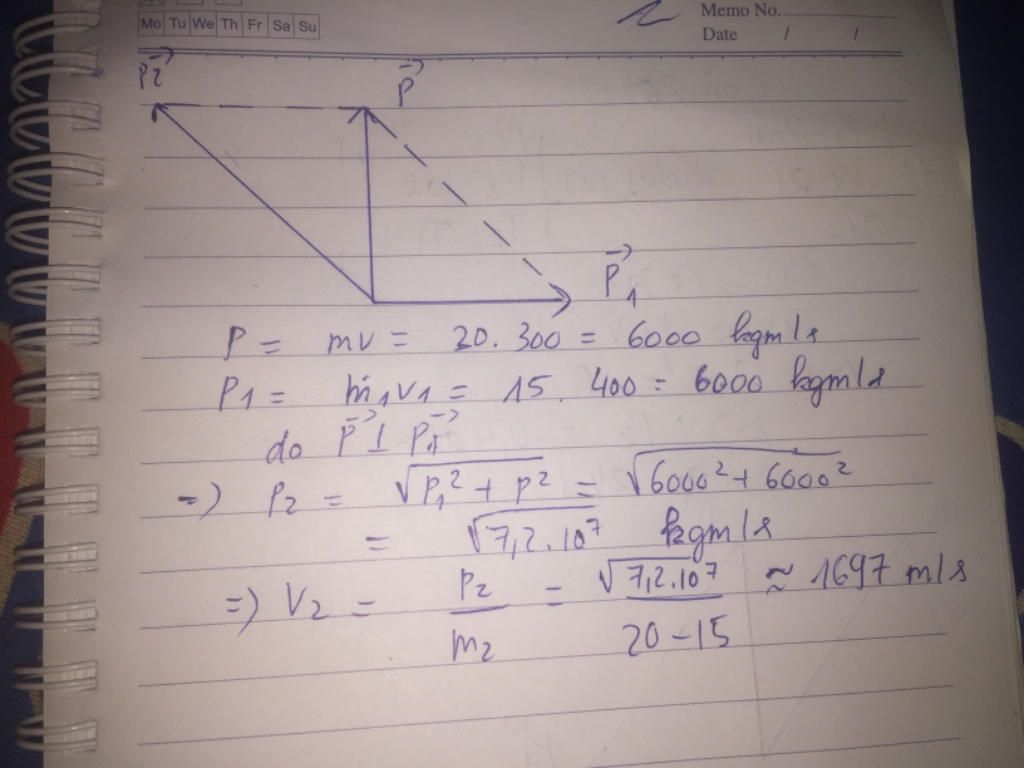 Mo Tu We Th Fr Sa Su
Memo No.
Date / /
P2
P
P1
P = mv = 20.300 = 6000 kgm/s
P1 = m1v1 = 15.400 = 6000 kgm/s
do P ⊥ P1
=) P2 = √P1² + P² = √6000² + 6000²
= √7,2.10⁷ kgm/s
=) V2 = P2/m2 = √7,2.10⁷/20-15 ≈ 1697 m/s